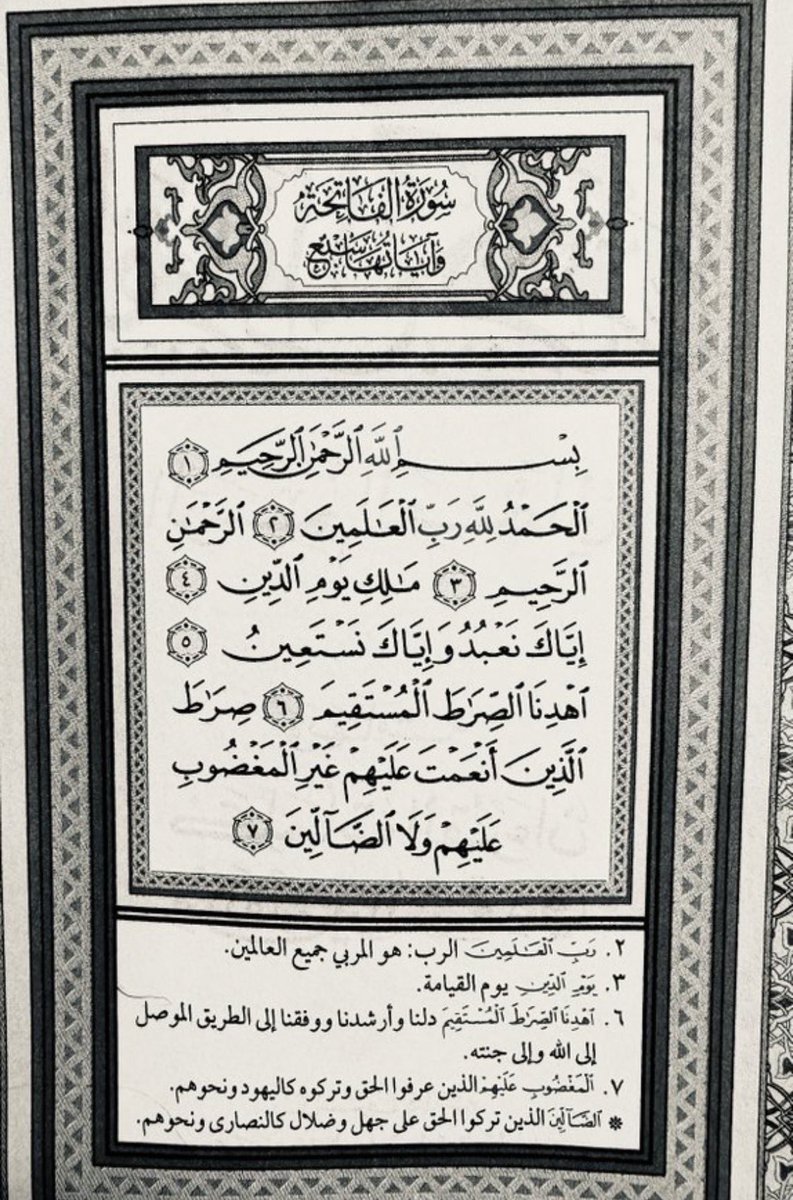 سُورَةُ الفَاتِحَة
وَآيَاتُهَا سَبْعٌ
بِسْمِ ٱللَّهِ ٱلرَّحْمَٰنِ ٱلرَّحِيمِ ١
ٱلْحَمْدُ لِلَّهِ رَبِّ ٱلْعَٰلَمِينَ ٢ ٱلرَّحْمَٰنِ
ٱلرَّحِيمِ ٣ مَٰلِكِ يَوْمِ ٱلدِّينِ ٤
إِيَّاكَ نَعْبُدُ وَإِيَّاكَ نَسْتَعِينُ ٥
ٱهْدِنَا ٱلصِّرَٰطَ ٱلْمُسْتَقِيمَ ٦ صِرَٰطَ
ٱلَّذِينَ أَنْعَمْتَ عَلَيْهِمْ غَيْرِ ٱلْمَغْضُوبِ
عَلَيْهِمْ وَلَا ٱلضَّآلِّينَ ٧
٢. رَبِّ ٱلْعَٰلَمِينَ الرب: هو المربي جميع العالمين.
٣. يَوْمِ ٱلدِّينِ يوم القيامة.
٦. ٱهْدِنَا ٱلصِّرَٰطَ ٱلْمُسْتَقِيمَ دلنا وأرشدنا ووفقنا إلى الطريق الموصل
إلى الله وإلى جنته.
٧. ٱلْمَغْضُوبِ عَلَيْهِمْ الذين عرفوا الحق وتركوه كاليهود ونحوهم.
* ٱلضَّآلِّينَ الذين تركوا الحق على جهل وضلال كالنصارى ونحوهم.